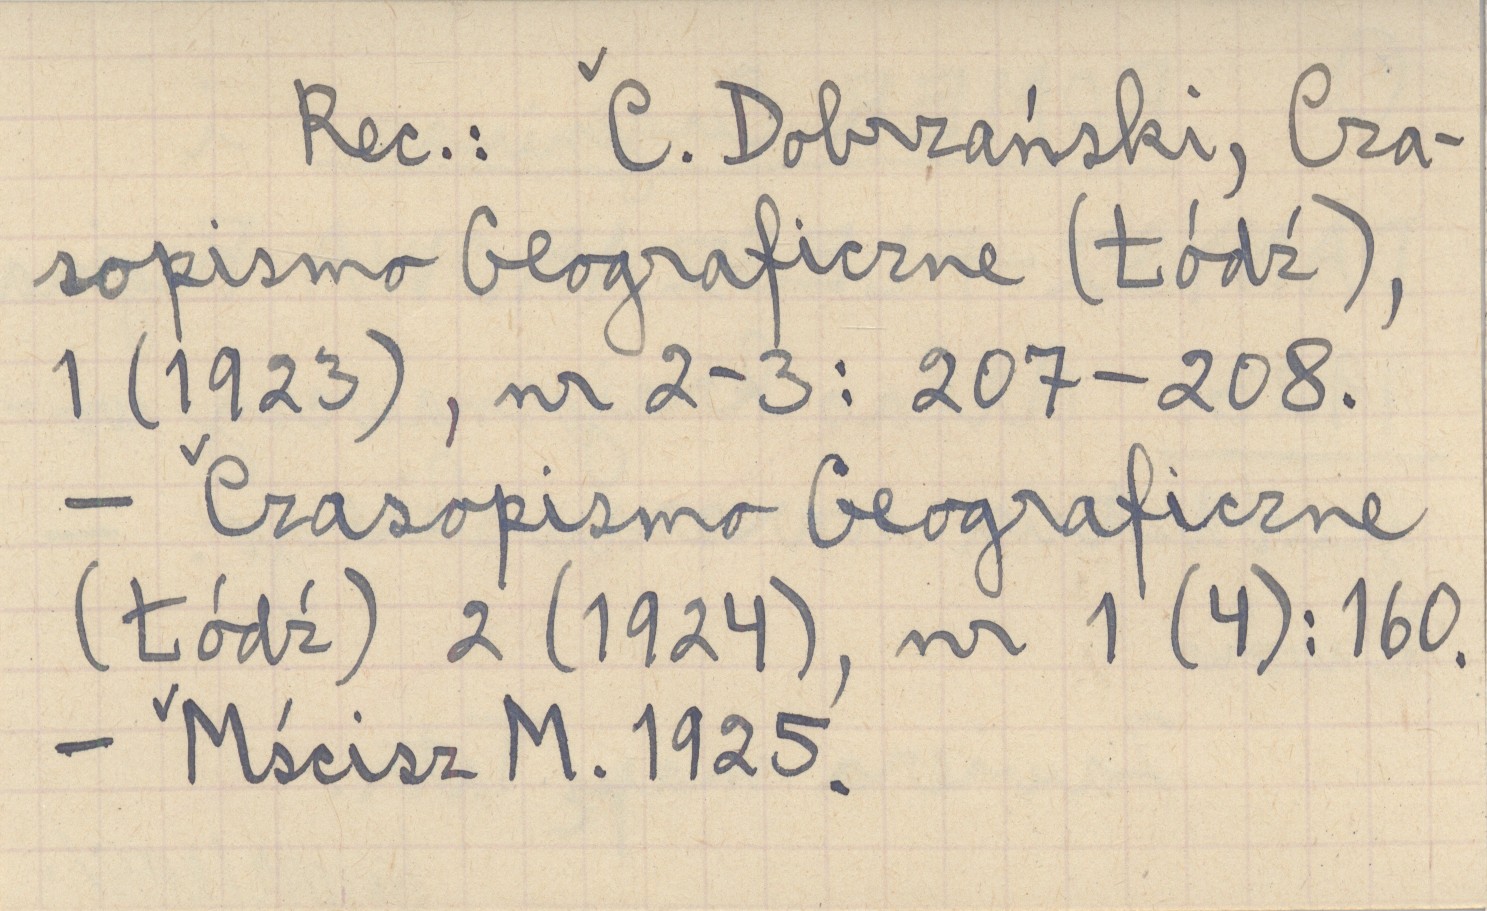 Rec.: ˇC. Dobrzański, Cza-
sopismo Geograficzne (Łódź),
1 (1923), nr 2-3: 207-208.
- ˇCzasopismo Geograficzne
(Łódź) 2 (1924), nr 1 (4): 160.
- ˇMścisz M. 1925.